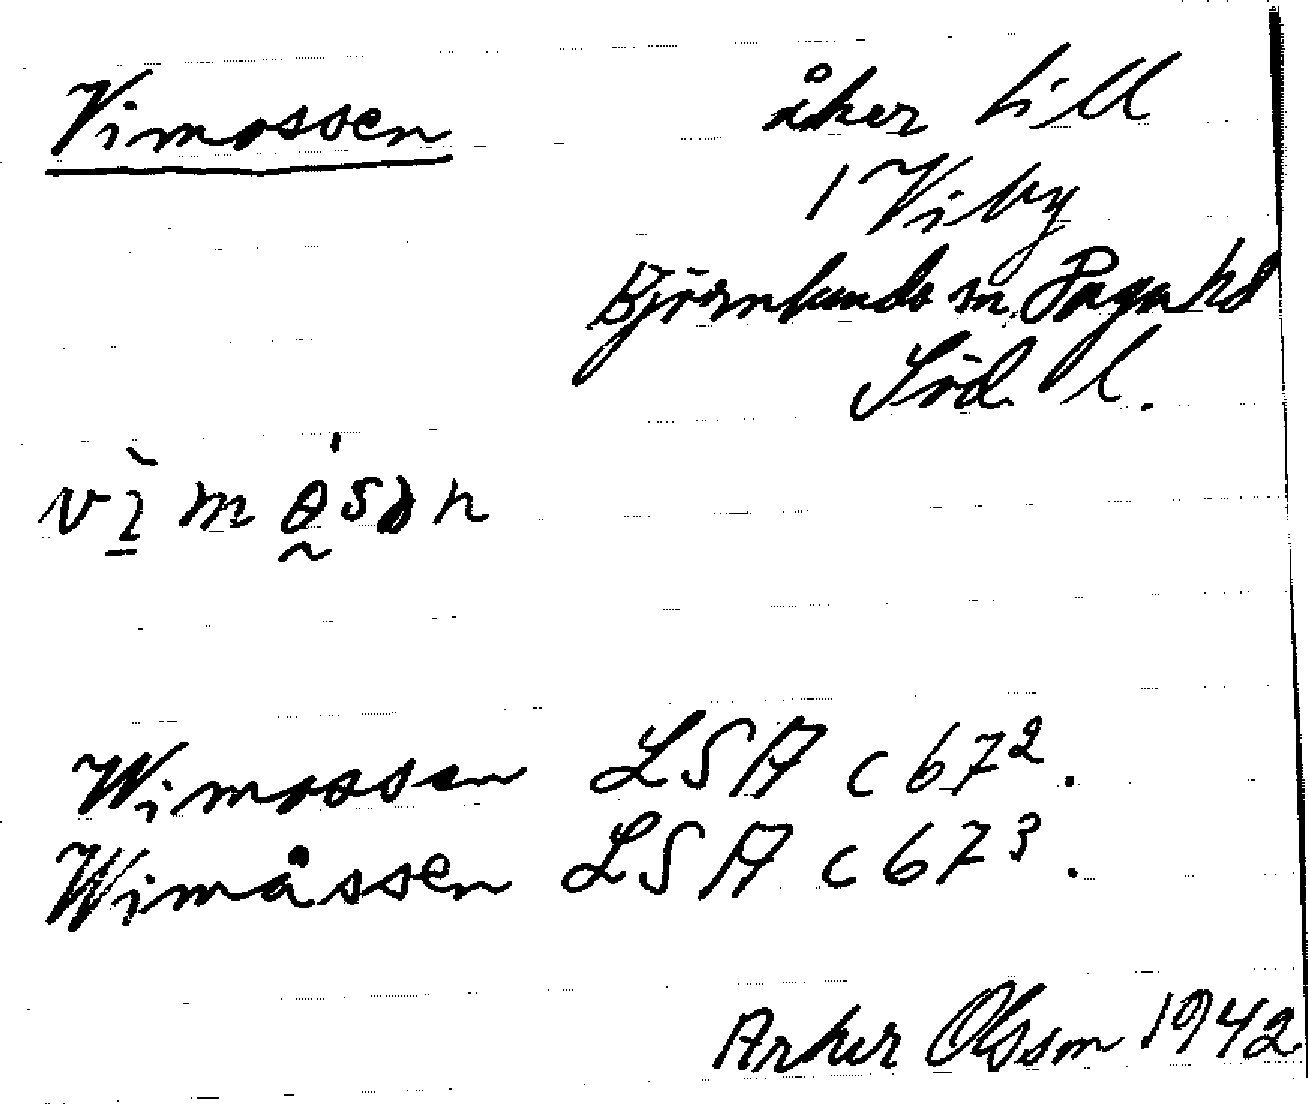 Vimossen
åker till
1 Viby
Björnlunda sn. Daga hd
Söd. l.
Wimossen LSA c 67².
Wimåssen LSA c 67³.
Anker Olsson 1942